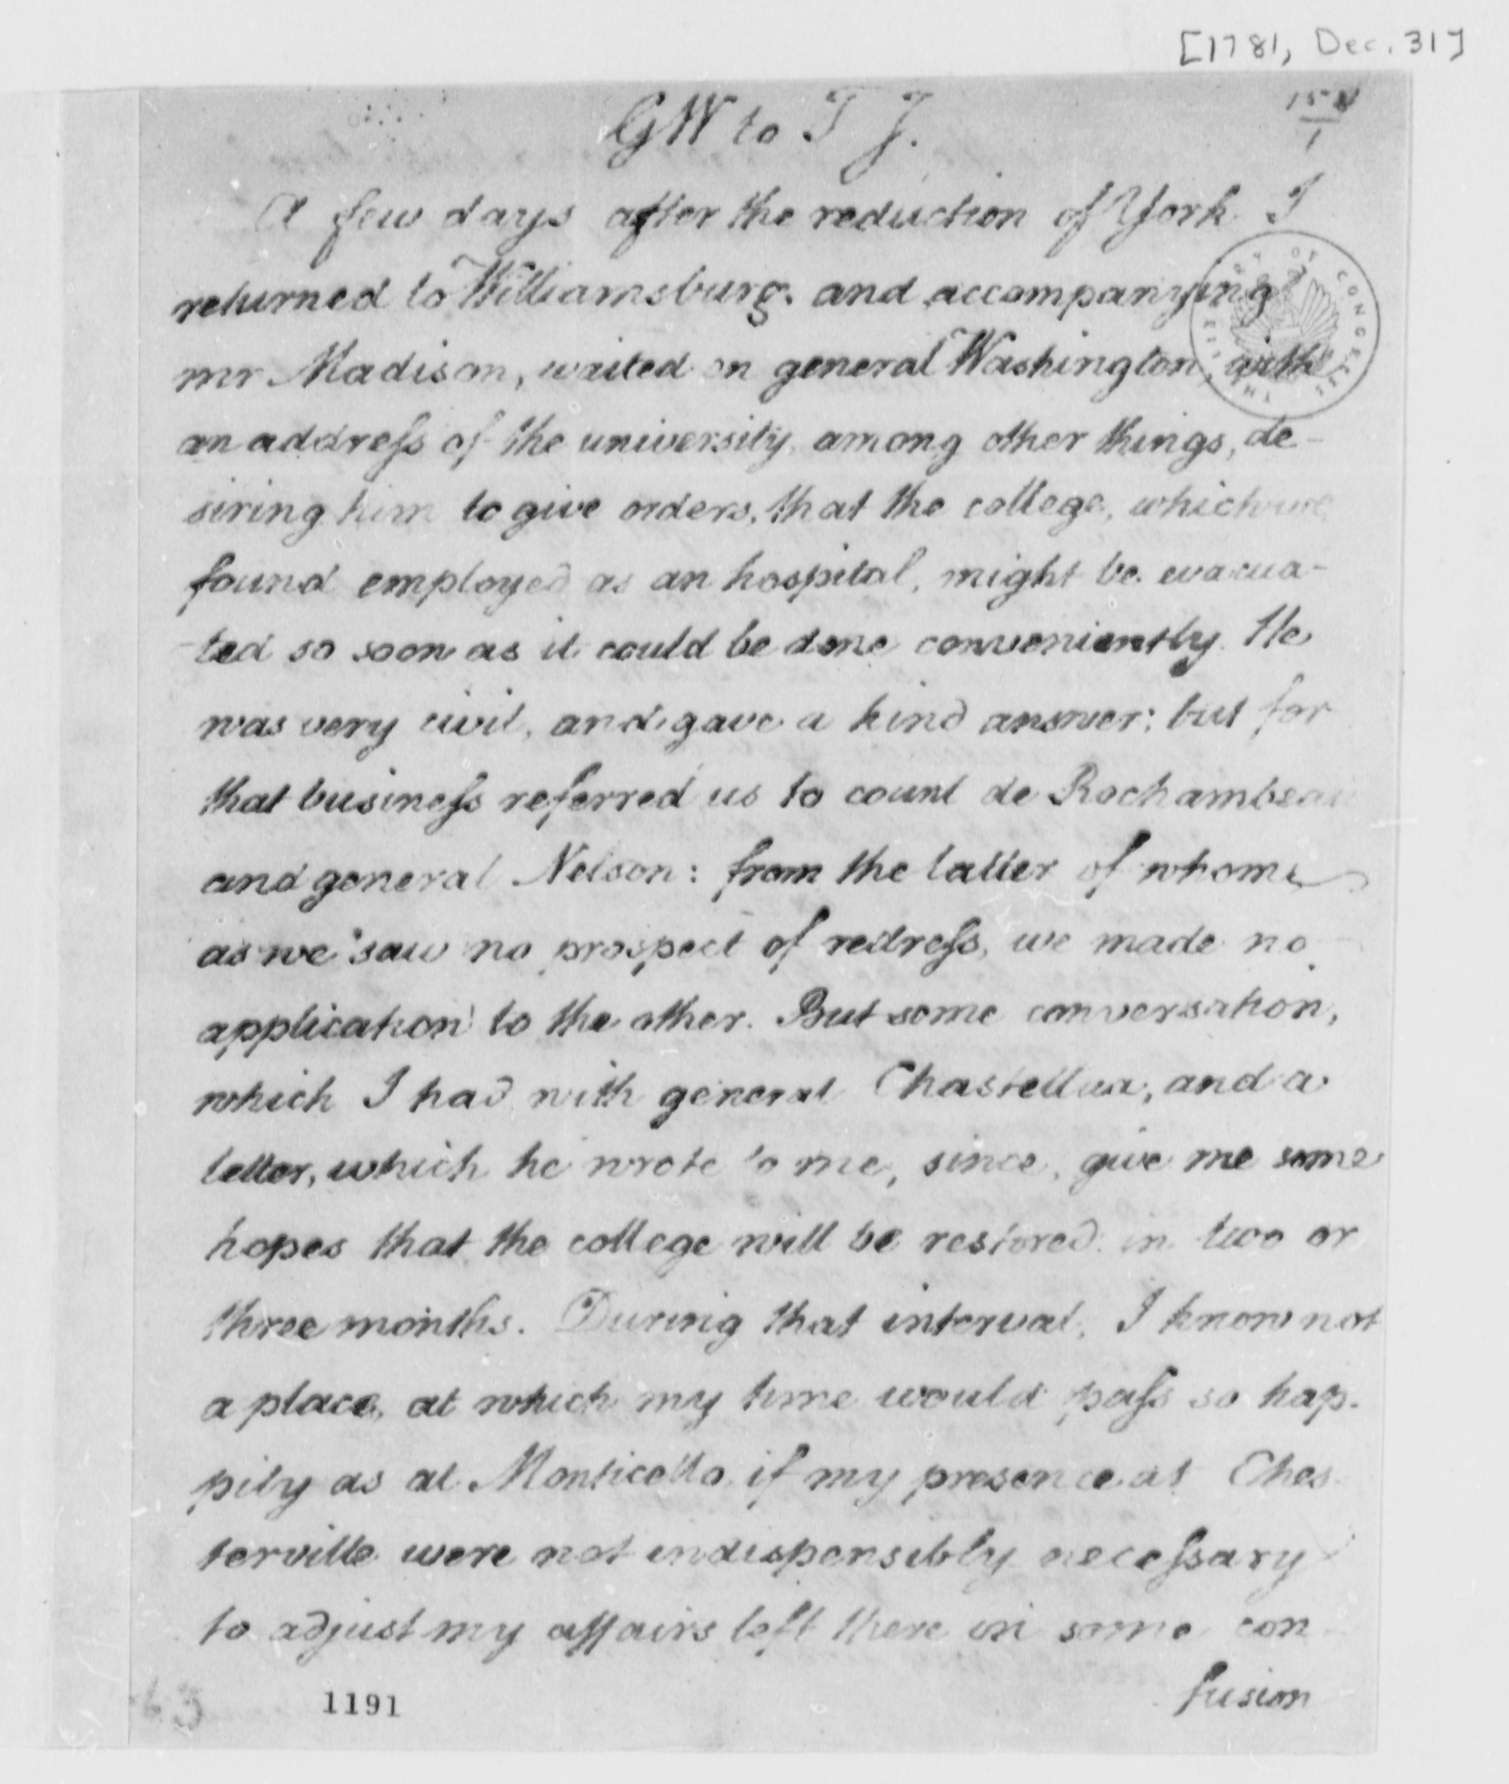 [1781, Dec. 31]
GW to T J.
A few days after the reduction of York I
returned to Williamsburg. and accompanying
mr Madison, waited on general Washington, with
an address of the university, among other things, de-
siring him to give orders, that the college, which we
found employed as an hospital, might be evacua-
ted so soon as it could be done conveniently. He
was very civil, and gave a kind answer: but for
that business referred us to count de Rochambeau
and general Nelson: from the latter of whom
as we saw no prospect of redress, we made no
application to the other. But some conversation,
which I had with general Chastellux, and a
letter, which he wrote to me, since, give me some
hopes that the college will be restored in two or
three months. During that interval, I know not
a place, at which my time would pass so hap-
pily as at Monticello if my presence at Ches
terville were not indispensibly necessary
to adjust my affairs left there in some con
fusion
1191
THE LIBRARY OF CONGRESS